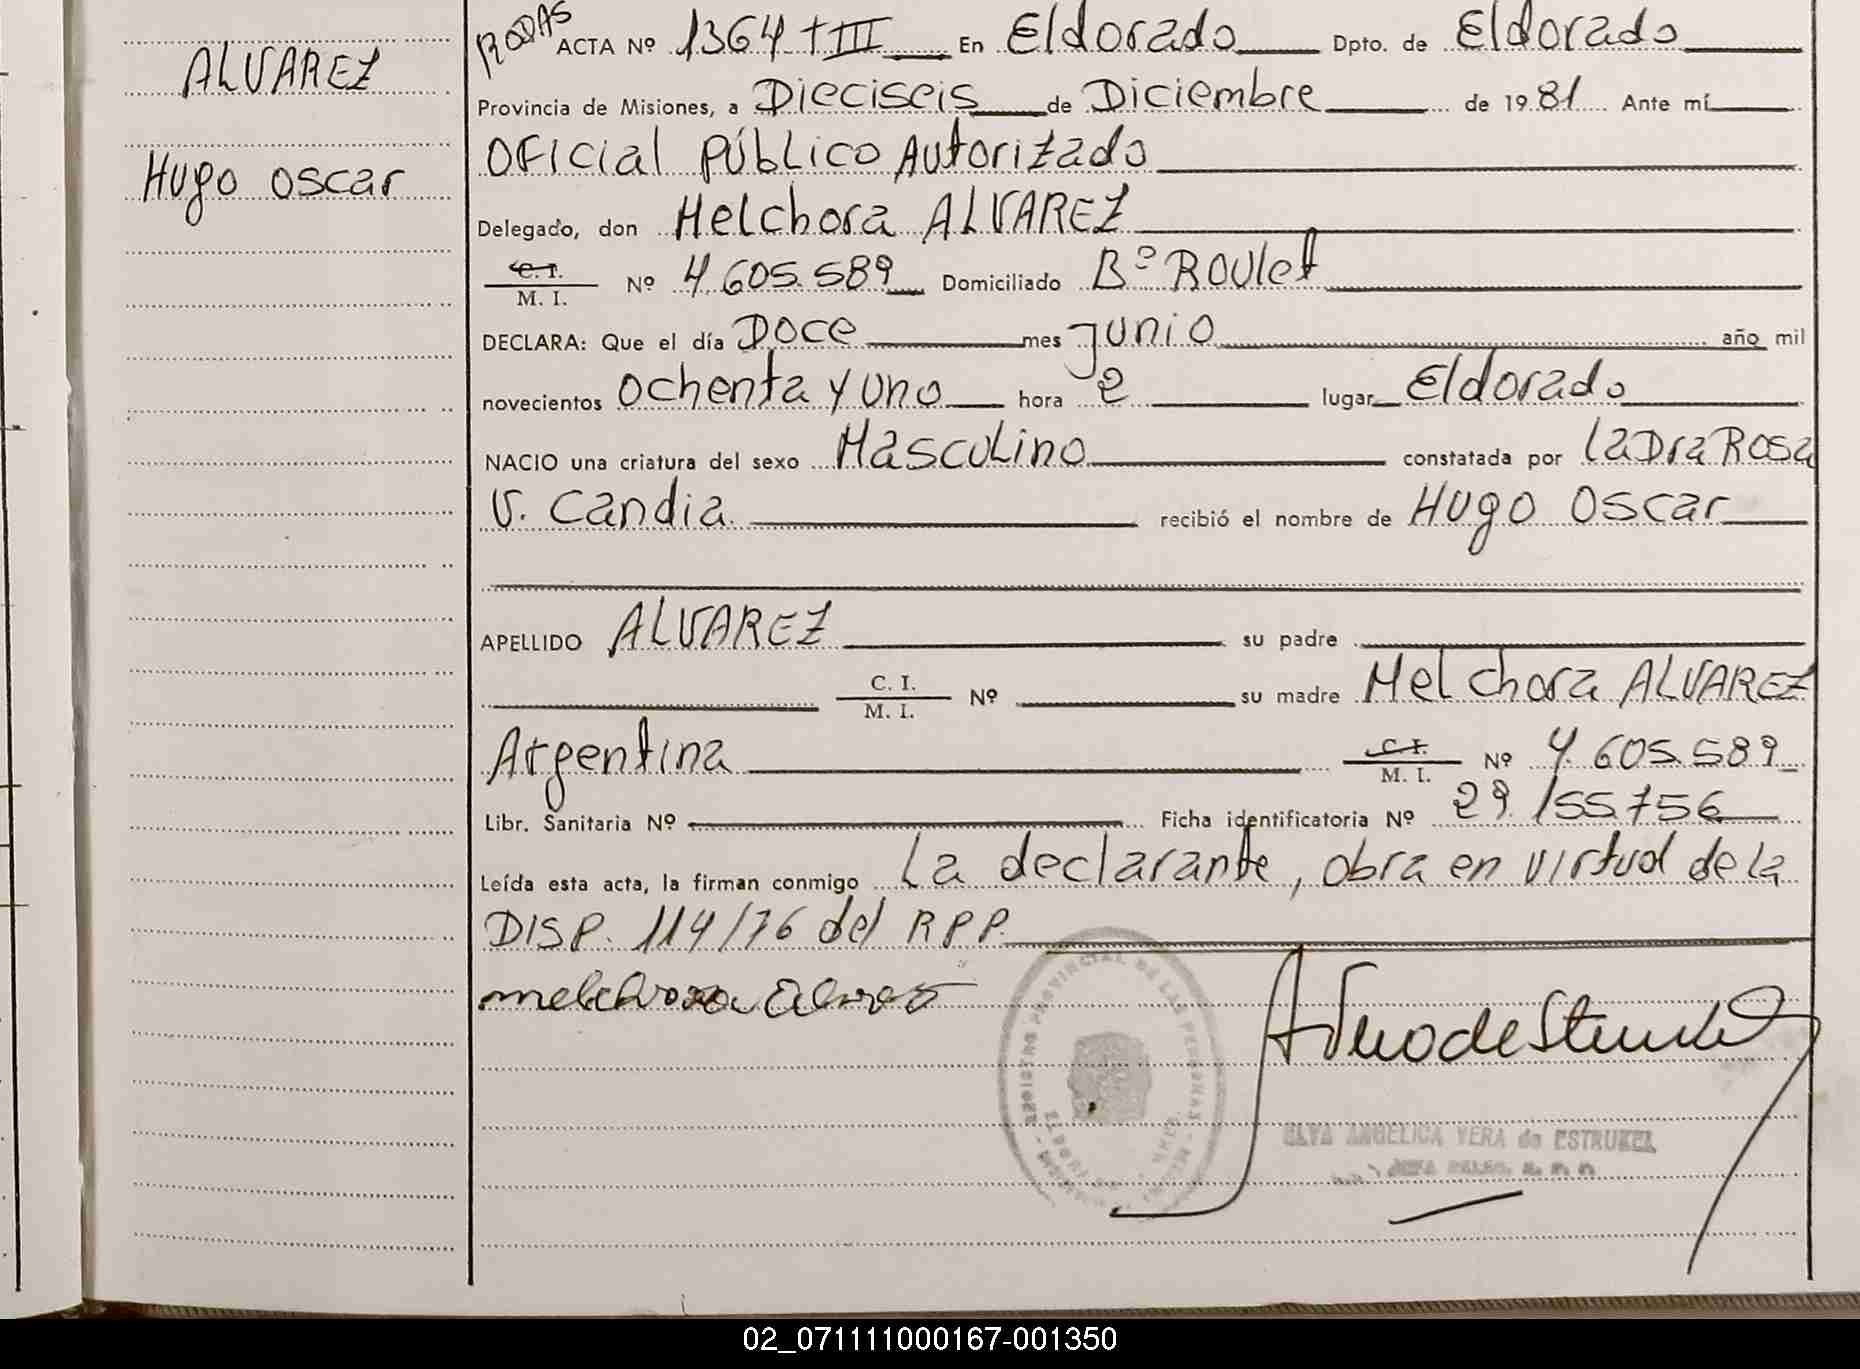 ALVAREZ
Hugo Oscar
RODAS
ACTA Nº 1364 + III En Eldorado Dpto. de Eldorado
Provincia de Misiones, a Dieciseis de Diciembre de 1981 Ante mí
Oficial Público Autorizado
Delegado, don Melchora ALVAREZ
C. I. / M. I. Nº 4.605.589 Domiciliado Bº Roulet
DECLARA: Que el día Doce mes junio año mil
novecientos ochenta y uno hora 2 lugar Eldorado
NACIO una criatura del sexo Masculino constatada por la Dra Rosa
V. Candia. recibió el nombre de Hugo Oscar
APELLIDO ALVAREZ su padre
C. I. / M. I. Nº su madre Melchora ALVAREZ
Argentina C. I. / M. I. Nº 4.605.589
Libr. Sanitaria Nº Ficha identificatoria Nº 29.155.756
Leída esta acta, la firman conmigo La declarante, obra en virtud de la
DISP. 114/76 del RPP.
melchora alvarez
REGISTRO PROVINCIAL DE LAS PERSONAS
ELVA ANGELICA VERA de ESTRUKEL
02_071111000167-001350